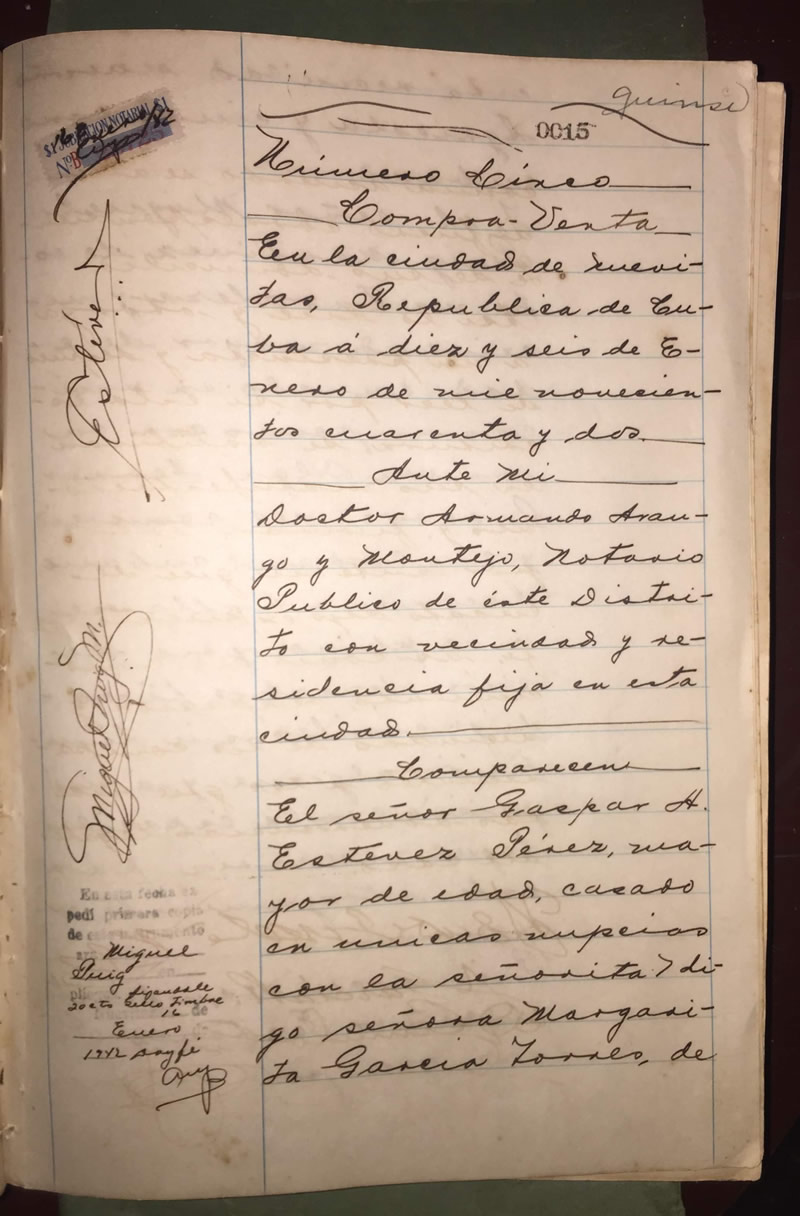 quinse
0015
Número Cinco
Compra-Venta
En la ciudad de Nuevi-
tas, Republica de Cu-
ba á diez y seis de E-
nero de mil novecien-
tos cuarenta y dos.
Ante Mi
Doctor Armando Aran-
go y Montejo, Notario
Publico de éste Distri-
to con vecindad y re-
sidencia fija en esta
ciudad.
Comparecen
El señor Gaspar A.
Estevez Pérez, ma-
yor de edad, casado
en unicas nupcias
con la señorita di-
go señora Margari-
ta Garcia Torres, de
Estévez
Miguel Puig M.
En esta fecha ex
pedí primera copia
de este
Miguel
Puig
Sello timbre
16 de
Enero
1942 doy fé